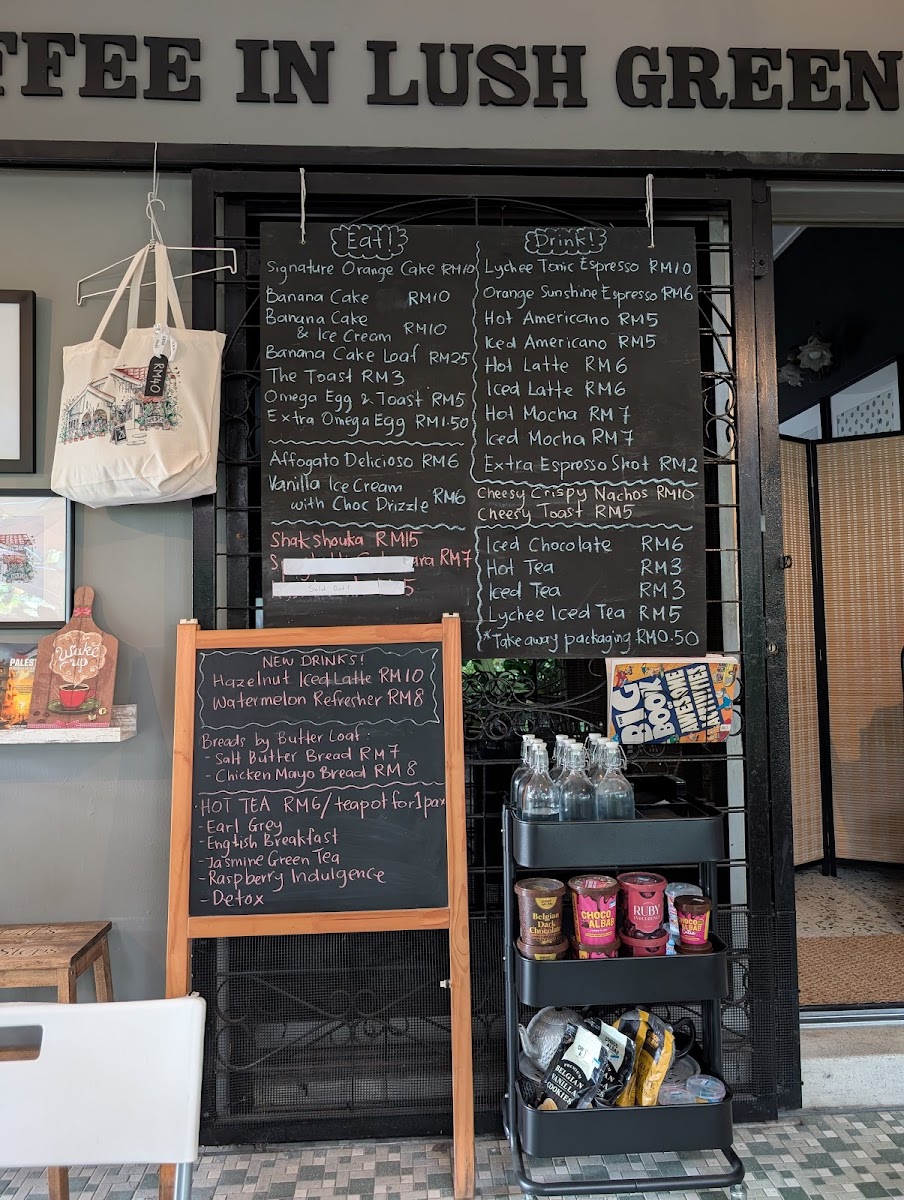 FFEE IN LUSH GREEN
Eat!
Signature Orange Cake RM10
Banana Cake RM10
Banana Cake
& Ice Cream RM10
Banana Cake Loaf RM25
The Toast RM3
Omega Egg & Toast RM5
Extra Omega Egg RM1.50
Affogato Delicioso RM6
Vanilla Ice Cream
with Choc Drizzle RM6
Shakshouka RM15
RM7
Sold Out!
5
Drink!
Lychee Tonic Espresso RM10
Orange Sunshine Espresso RM6
Hot Americano RM5
Iced Americano RM5
Hot Latte RM6
Iced Latte RM6
Hot Mocha RM7
Iced Mocha RM7
Extra Espresso Shot RM2
Cheesy Crispy Nachos RM10
Cheesy Toast RM5
Iced Chocolate RM6
Hot Tea RM3
Iced Tea RM3
Lychee Iced Tea RM5
*Take away packaging RM0.50
RM40
Wake
up
PALEST
NEW DRINKS!
Hazelnut Iced Latte RM10
Watermelon Refresher RM8
Breads by Butter Loaf:
- Salt Butter Bread RM7
- Chicken Mayo Bread RM8
HOT TEA RM6/teapot for 1 pax
- Earl Grey
- English Breakfast
- Jasmine Green Tea
- Raspberry Indulgence
- Detox
BIG
BOOK
OF AWESOME
ACTIVITIES
Belgian
Dark
Chocolate
CHOCO
ALBAB
RUBY
INDULGENCE
CHOCO
ALBAB
BELGIAN
VANILLA
COOKIES